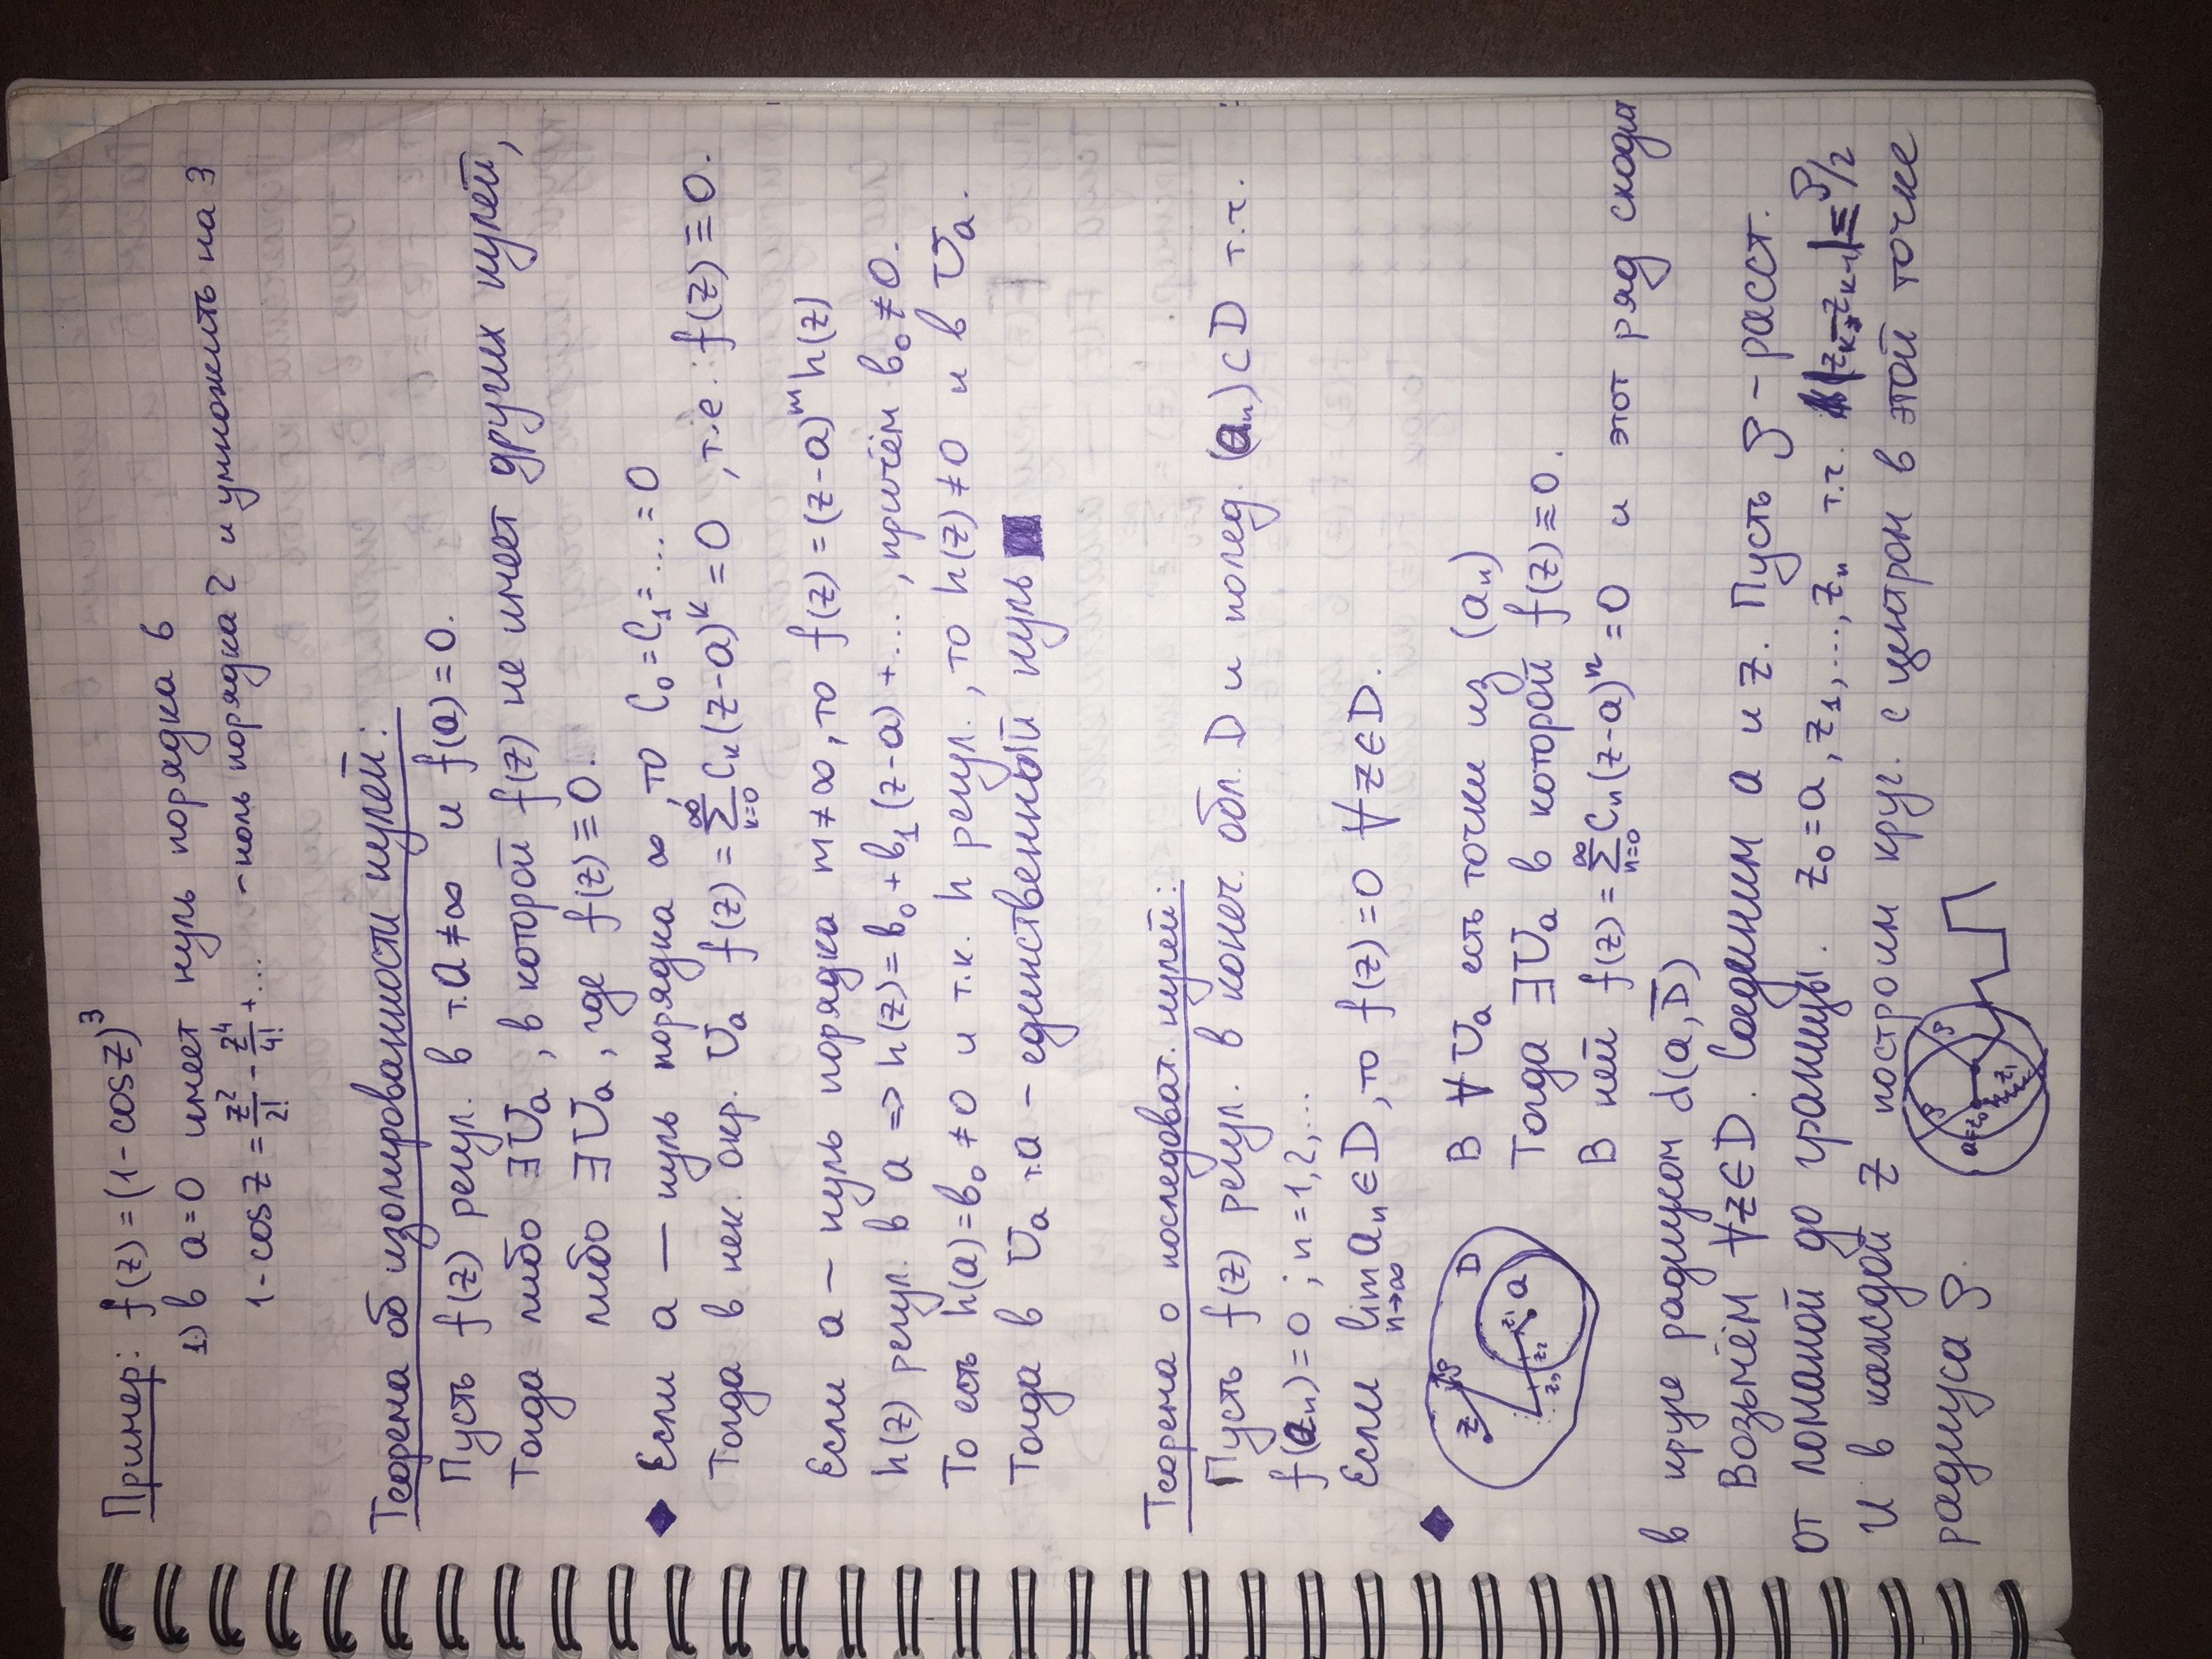 Пример: f(z) = (1 - cos z)³
1) в a = 0 имеет нуль порядка 6
1 - cos z = z²/2! - z⁴/4! + ... - ноль порядка 2 и умножить на 3
Теорема об изолированности нулей:
Пусть f(z) регул. в т. a ≠ ∞ и f(a) = 0.
Тогда либо ∃ U_a, в которой f(z) не имеет других нулей,
либо ∃ U_a, где f(z) ≡ 0.
◆ Если a — нуль порядка ∞, то C₀ = C₁ = ... = 0
Тогда в нек. окр. U_a f(z) = ∑_{k=0}^{∞} C_k (z-a)^k = 0, т.е. f(z) ≡ 0.
Если a — нуль порядка m ≠ ∞, то f(z) = (z-a)^m h(z)
h(z) регул. в a ⇒ h(z) = b₀ + b₁(z-a) + ..., причём b₀ ≠ 0.
То есть h(a) = b₀ ≠ 0 и т.к. h регул., то h(z) ≠ 0 и в U_a.
Тогда в U_a т. a - единственный нуль
Теорема о последоват. нулей:
Пусть f(z) регул. в конеч. обл. D и полед. (a_n) ⊂ D т.ч.
f(a_n) = 0; n = 1, 2, ...
Если lim_{n→∞} a_n ∈ D, то f(z) = 0 ∀ z ∈ D.
◆
z ρ D
z₁ a
z₃ z₂
В ∀ U_a есть точки из (a_n)
Тогда ∃ U_a в которой f(z) ≡ 0.
В ней f(z) = ∑_{n=0}^{∞} C_n (z-a)^n = 0 и этот ряд сходит
в круге радиусом d(a, D̄)
Возьмём ∀ z ∈ D. Соединим a и z. Пусть ρ - расст.
от ломаной до границы. z₀ = a, z₁, ..., z_n т.ч. |z_k - z_{k-1}| = ρ/2
И в каждой z построим круг. с центром в этой точке
радиуса ρ.
ρ ρ
a = z₀
z₁